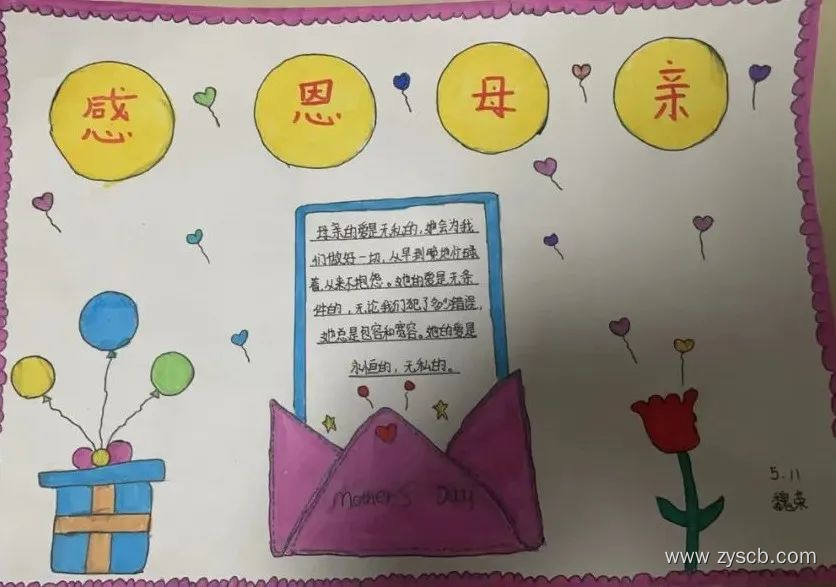 感恩母亲
母亲的爱是无私的,她会为我
们做好一切,从早到晚地忙碌
着,从来不抱怨。她的爱是无条
件的,无论我们犯了多少错误,
她总是包容和宽容。她的爱是
永恒的,无私的。
Mother's Day
5.11
www.zyscb.com